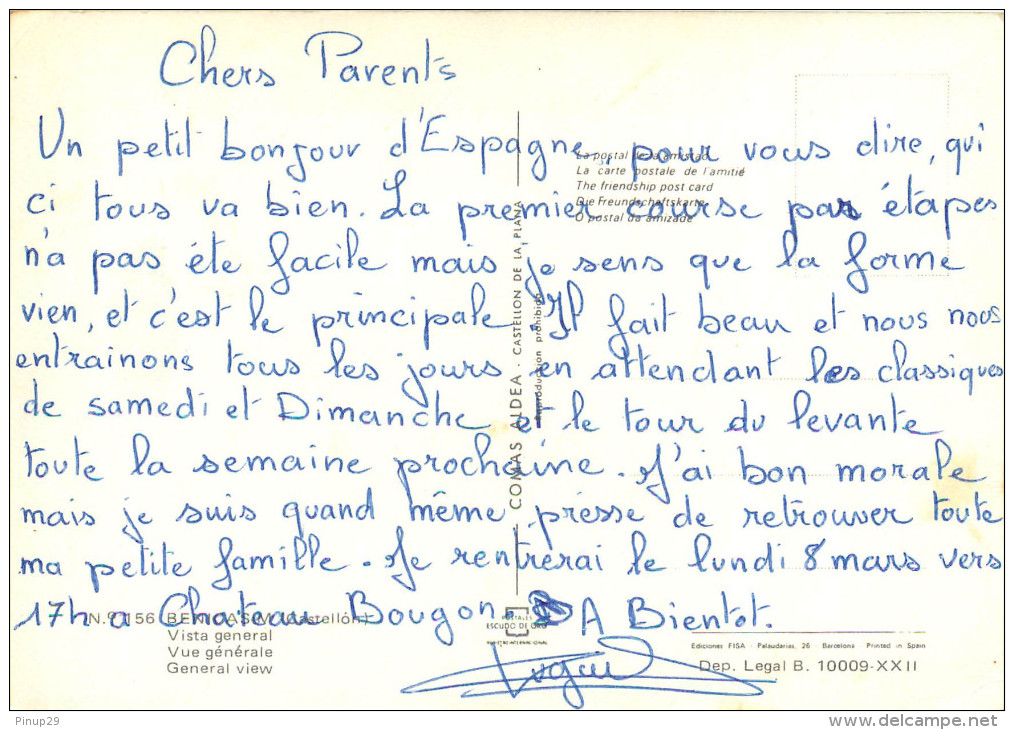 Chers Parents
Un petit bonjour d'Espagne, pour vous dire, qui
ci tous va bien. La premier course par étapes
n'a pas éte facile mais je sens que la forme
vien, et c'est le principale. Il fait beau et nous nous
entrainons tous les jours en attendant les classiques
de samedi et Dimanche et le tour du levante
toute la semaine prochaine. J'ai bon morale
mais je suis quand même présse de retrouver toute
ma petite famille. Je rentrerai le lundi 8 mars vers
17h a Chateau Bougon. A Bientot.
La postal de la amistad
La carte postale de l'amitié
The friendship post card
Die Freundschaftskarte
O postal da amizade
COMAS ALDEA - CASTELLON DE LA PLANA
Reproduccion prohibida
N.º 156 BENICASIM (Castellón)
Vista general
Vue générale
General view
POSTALES
ESCUDO DE ORO
REGISTRO INTERNACIONAL
Ediciones FISA - Palaudarias, 26 Barcelona Printed in Spain
Dep. Legal B. 10009-XXII
Pinup29
www.delcampe.net